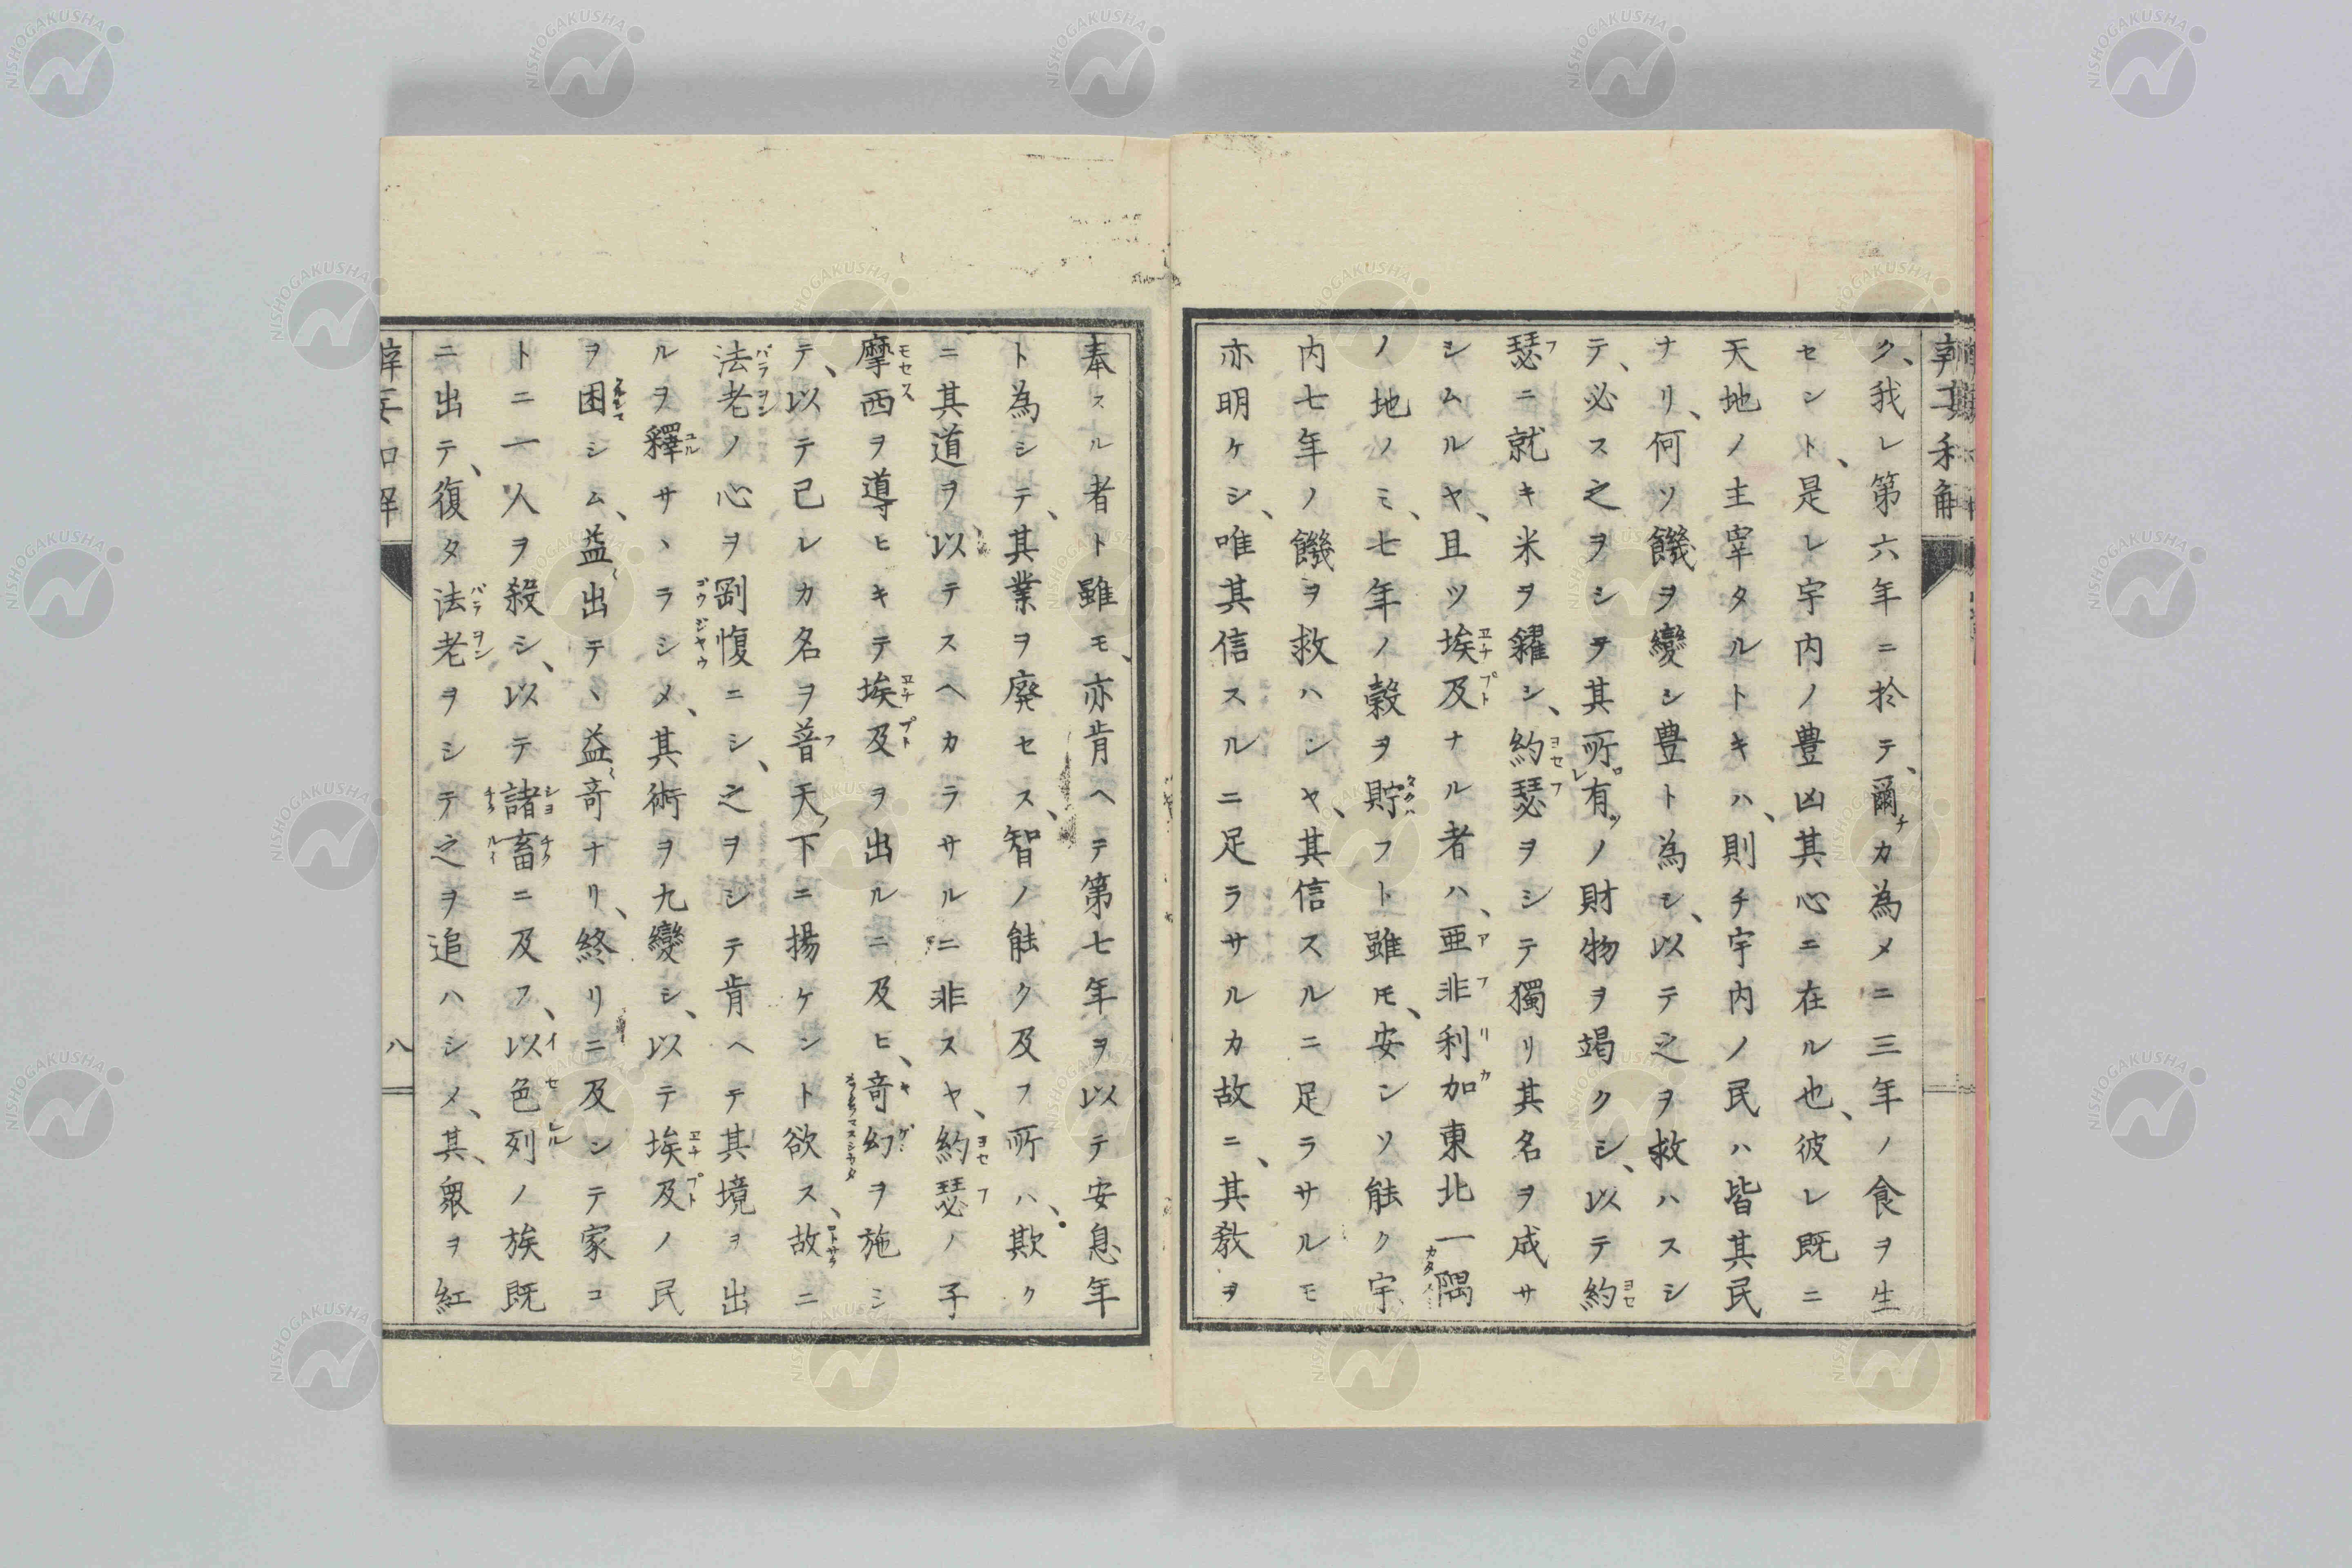 辨妄和解
ク、我レ第六年ニ於テ、爾カ為メニ三年ノ食ヲ生
セント、是レ宇内ノ豊凶其心ニ在ル也、彼レ既ニ
天地ノ主宰タルトキハ、則チ宇内ノ民ハ皆其民
ナリ、何ソ饑ヲ變シ豊ト為シ、以テ之ヲ救ハスシ
テ、必ス之ヲシテ其所有ノ財物ヲ竭クシ、以テ約
瑟ニ就キ米ヲ糴シ、約瑟ヲシテ獨リ其名ヲ成サ
シムルヤ、且ツ埃及ナル者ハ、亜非利加東北一隅
ノ地ノミ、七年ノ穀ヲ貯フト雖モ、安ンソ能ク宇
内七年ノ饑ヲ救ハンヤ、其信スルニ足ラサルモ
亦明ケシ、唯其信スルニ足ラサルカ故ニ、其教ヲ
奉スル者ト雖モ、亦肯ヘテ第七年ヲ以テ安息年
ト為シテ、其業ヲ廃セス、智ノ能ク及フ所ハ、欺ク
ニ其道ヲ以テスヘカラサルニ非スヤ、約瑟ノ子
摩西ヲ導ヒキテ埃及ヲ出ルニ及ヒ、奇幻ヲ施シ
テ、以テ己レカ名ヲ普天下ニ揚ケント欲ス、故ニ
法老ノ心ヲ剛愎ニシ、之ヲシテ肯ヘテ其境ヲ出
ルヲ釋サヽラシメ、其術ヲ九變シ、以テ埃及ノ民
ヲ困シム、益出テヽ益奇ナリ、終リニ及ンテ家コ
トニ一人ヲ殺シ、以テ諸畜ニ及フ、以色列ノ族既
ニ出テ、復タ法老ヲシテ之ヲ追ハシメ、其衆ヲ紅
辨妄和解
八
NISHOGAKUSHA